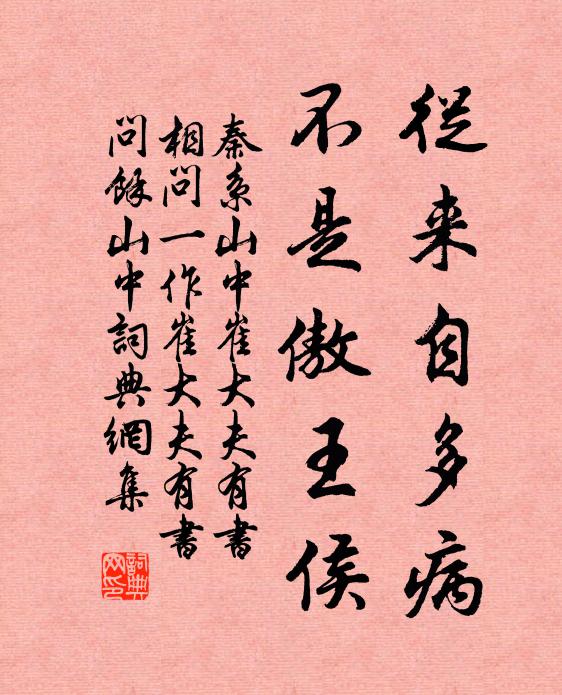 從来自多病
不是傲王侯
秦系山中崔大夫有書
相問一作崔大夫有書
問餘山中詞典網集
詞典
网印